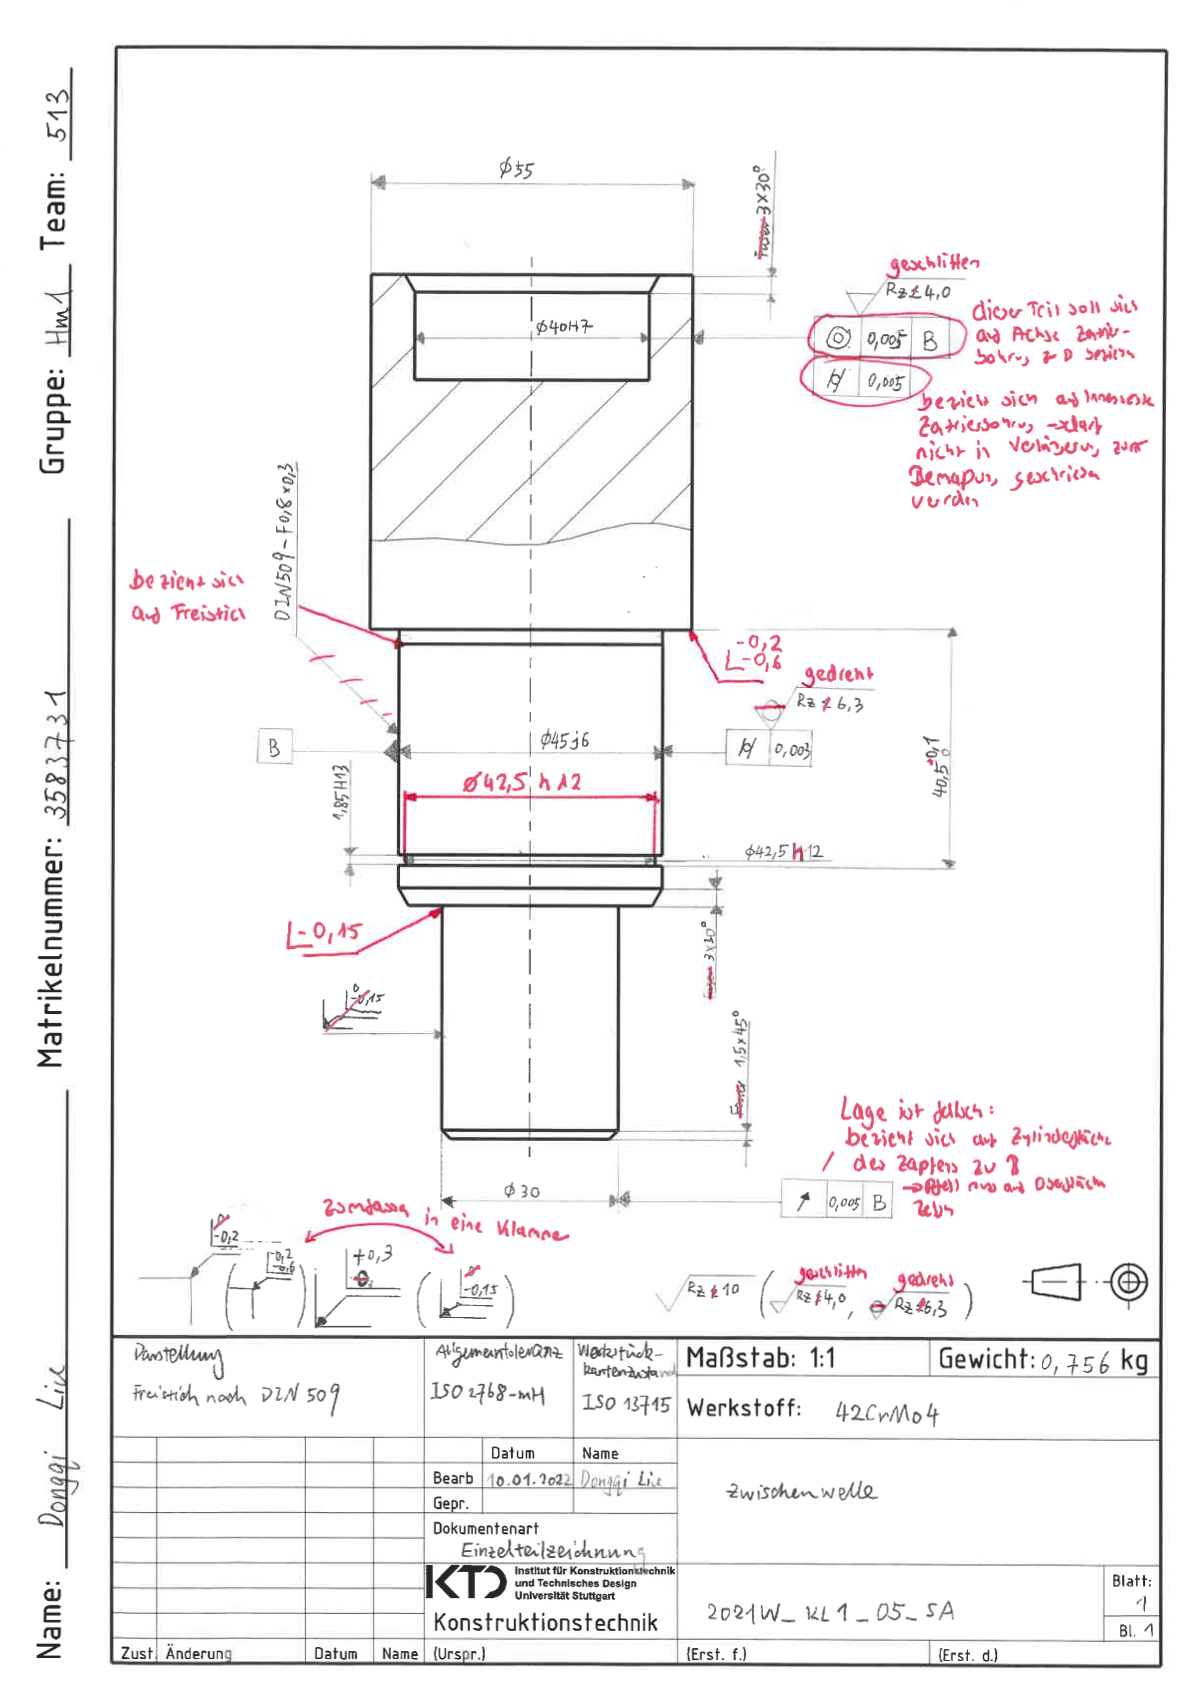 Name: Dongqi Liu Matrikelnummer: 3583731 Gruppe: Hm1 Team: 513
⌀55
3x30°
geschliffen
Rz 4,0
⌀40H7
◎ 0,005 B
dieser Teil soll sich
auf Achse
⌭ 0,005
bezieht sich auf
nicht in
werden
DIN509-F0,8x0,3
bezieht sich
auf Freistich
-0,2
-0,6
gedreht
Rz 6,3
B
⌀45j6
⌭ 0,003
40,5 +0,1 0
1,85H13
⌀42,5 h12
⌀42,5 h12
-0,15
3x30°
0
-0,15
1,5x45°
Lage ist falsch:
bezieht sich auf Zylinderfläche
des Zapfens zu
⌀30
↗ 0,005 B
in eine Klammer
-0,2
-0,2
-0,6
+0,3
-0,15
Rz 10
geschliffen
Rz 4,0
gedreht
Rz 6,3
Darstellung
Freistich nach DIN 509
Allgemeintoleranz
ISO 2768-mH
Werkstück-
kantenzustand
ISO 13715
Maßstab: 1:1
Gewicht: 0,756 kg
Werkstoff: 42CrMo4
Datum Name
Bearb 10.01.2022 Dongqi Liu
Gepr.
Zwischenwelle
Dokumentenart
Einzelteilzeichnung
KTD Institut für Konstruktionstechnik
und Technisches Design
Universität Stuttgart
Konstruktionstechnik
2021W_KL1_05_SA
Blatt:
1
Bl. 1
Zust. Änderung Datum Name (Urspr.) (Erst. f.) (Erst. d.)